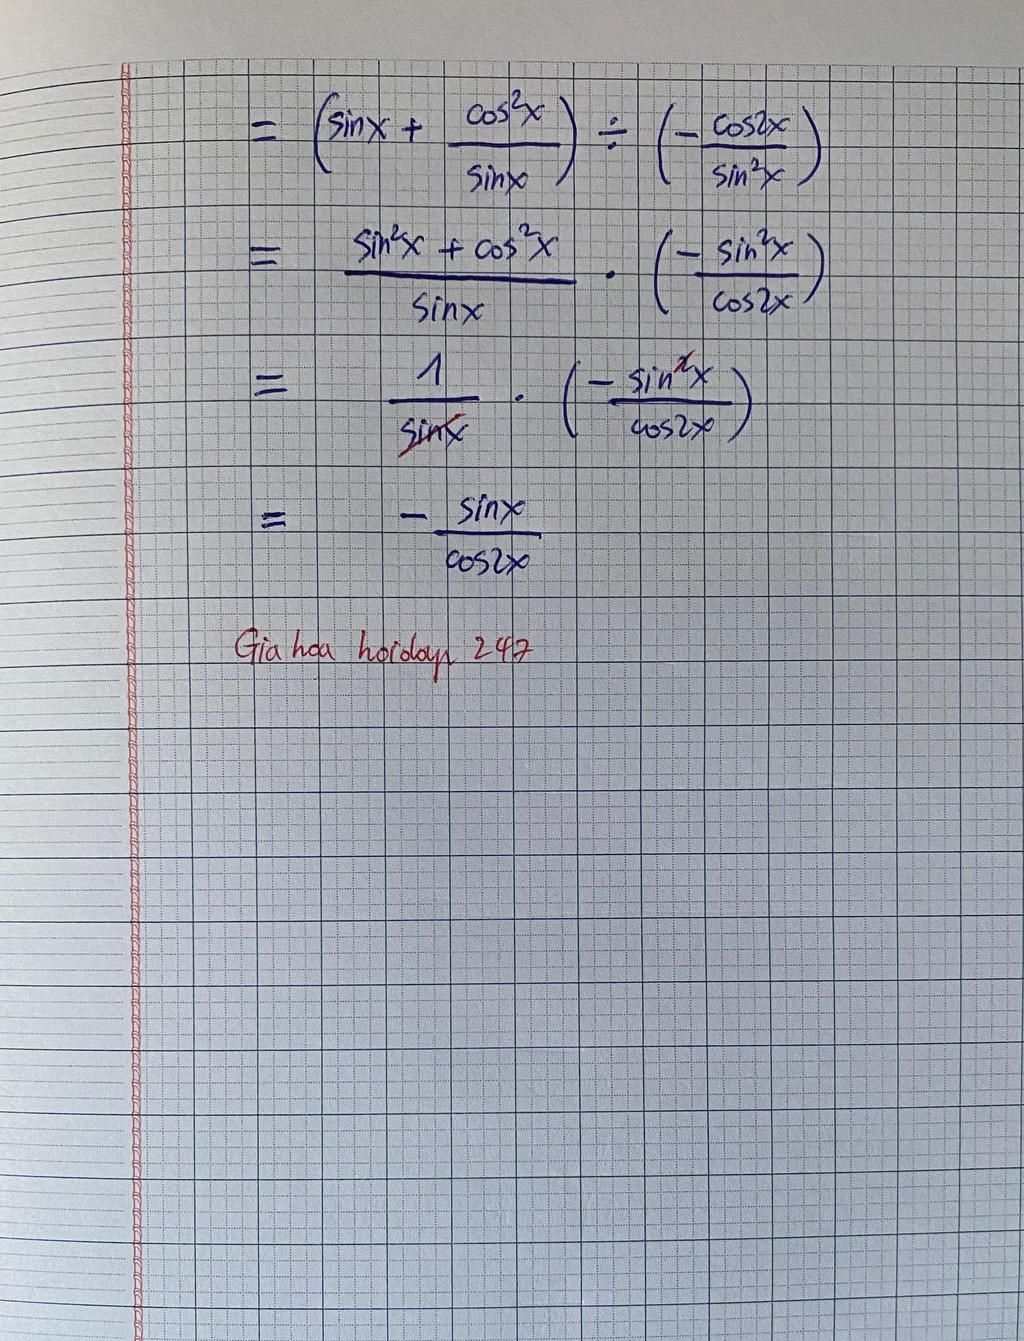 = (sinx + cos²x/sinx) ÷ (- cos2x/sin²x)
= (sin²x + cos²x)/sinx · (- sin²x/cos2x)
= 1/sinx · (- sin²x/cos2x)
= - sinx/cos2x
Gia hoa hoidap 247